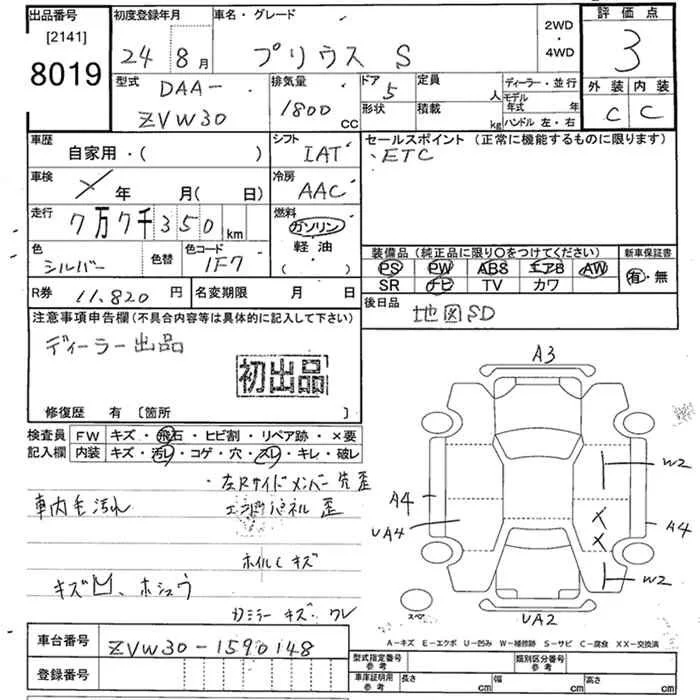 出品番号 初度登録年月 車名・グレード 2WD・4WD 評価点
[2141]
8019 24 8月 プリウス S 3
型式 DAA- 排気量 ドア 5 定員 人 ディーラー・並行 外装 内装
ZVW30 1800 CC 形状 積載 kg モデル年式 年 ハンドル 左・右 C C
車歴 自家用・( ) シフト IAT セールスポイント (正常に機能するものに限ります)
・ETC
車検 年 月(日) 冷房 AAC
走行 7万7千350 km 燃料 ガソリン
軽油
( )
色 シルバー 色替 色コード 1F7
装備品 (純正品に限り○をつけてください) 新車保証書
PS PW ABS エアB AW 有・無
SR ナビ TV カワ
R券 11,820円 名変期限 月 日
後日品 地図SD
注意事項申告欄 (不具合内容等は具体的に記入して下さい)
ディーラー出品
初出品
修復歴 有 [箇所 ]
検査員 FW キズ・飛石・ヒビ割・リペア跡・×要
記入欄 内装 キズ・汚レ・コゲ・穴・スレ・キレ・破レ
・左Rサイドメンバー先歪
車内毛汚れ エンドパネル歪
ホイルCキズ
キズ凹、ホシュウ
カミラーキズ、ワレ
A3
W2
A4
UA4
A4
W2
UA2
スペア
A-キズ E-エクボ U-凹み W-補修跡 S-サビ C-腐食 XX-交換済
車台番号 ZVW30-1590148
登録番号
型式指定番号 参考 類別区分番号 参考
車庫証明用 参考 長さ cm 幅 cm 高さ cm